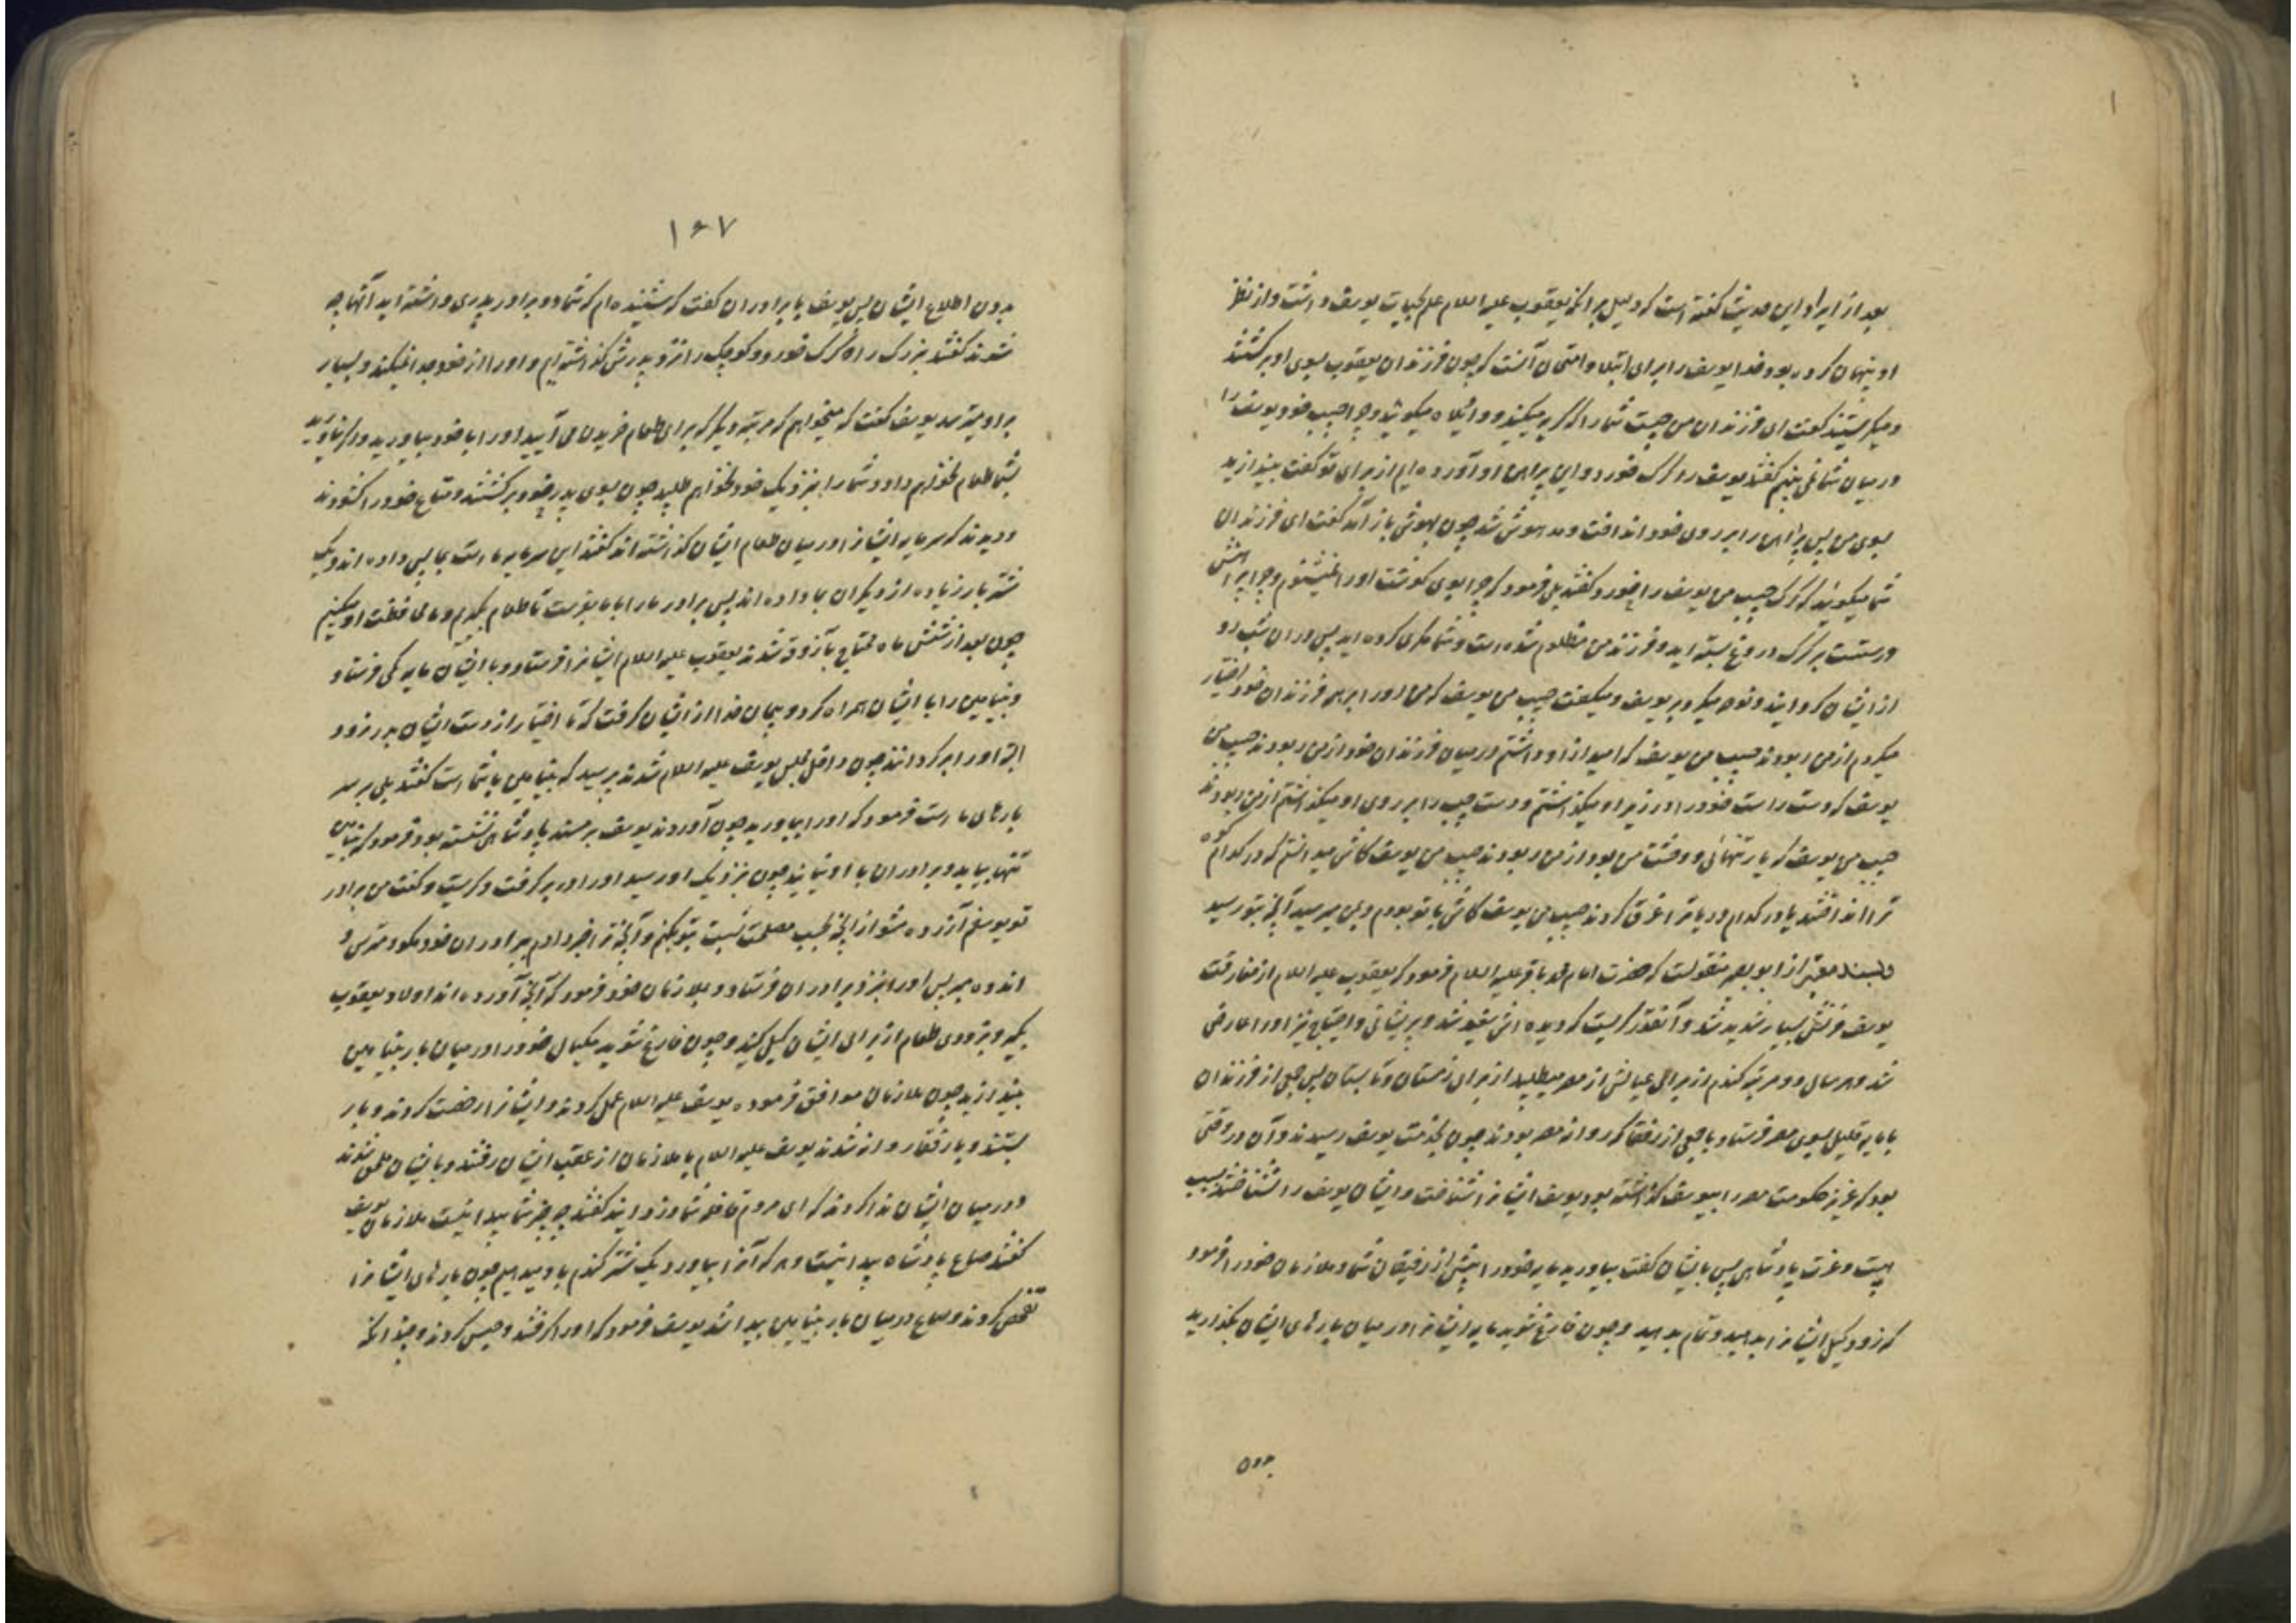 بعد از ایراد این حدیث گفته است که دلیل بر آنکه یعقوب علیه السلام علم بحیات یوسف داشت و از نظر
او پنهان کرده بود خدا یوسف را برای ابتلا و امتحان آنست که چون فرزندان یعقوب بسوی او برگشتند
و میگریستند گفت ای فرزندان من چیست شما را که گریه میکنید و واویلاه میگوئید و چرا حبیب خود یوسف را
در میان شما نمی بینم گفتند یوسف را گرگ خورد و این پیراهن او آورده ایم از برای تو گفت بیندازید
بسوی من پس پیراهن را بر روی خود انداخت و مدهوش شد چون بهوش باز آمد گفت ای فرزندان
شما میگوئید که گرگ حبیب من یوسف را خورد گفتند بلی فرمود که چرا بوی گوشت او را نمیشنوم و چرا پیراهنش
درستست بر گرگ دروغ بسته اید و فرزند من مظلوم شده است و شما مکری کرده اید پس در آن شب رو
از ایشان گردانید و نوحه میکرد بر یوسف و میگفت حبیب من یوسف که من او را بر همه فرزندان خود اختیار
میکردم از من ربودند حبیب من یوسف که امید از او داشتم در میان فرزندان خود از من ربودند حبیب من
یوسف که دست راست خود را در زیر او میگذاشتم و دست چپ را بر روی او میگذاشتم از من ربودند
حبیب من یوسف که یار تنهائی و وحشت من بود از من ربودند حبیب من یوسف کاش میدانستم که در کدام کوه
ترا انداختند یا در کدام دریا ترا غرق کردند حبیب من یوسف کاش با تو بودم و بمن میرسید آنچه بتو رسید
و بسند معتبر از ابو بصیر منقولست که حضرت امام محمد باقر علیه السلام فرمود که یعقوب علیه السلام از مفارقت
یوسف حزنش بسیار شدید شد و آنقدر گریست که دیده اش سفید شد و پریشانی و احتیاج نیز او را عارض
شد و هر سال دو مرتبه گندم از برای عیالش از مصر میطلبید از برای زمستان و تابستان پس جمعی از فرزندان
با مایه قلیل بسوی مصر فرستاد با جمعی از رفقا که روانه مصر بودند چون بخدمت یوسف رسیدند و آن در وقتی
بود که عزیز حکومت مصر را بیوسف گذاشته بود یوسف ایشانرا شناخت و ایشان یوسف را نشناختند بسبب
هیبت و عزت پادشاهی پس بایشان گفت بیاورید مایه خود را پیش از رفیقان شما و ملازمان خود را فرمود
که زود کیل ایشانرا بدهید و تمام بدهید و چون فارغ شوید مایه ایشانرا در میان بارهای ایشان بگذارید
بدون
۱۶۷
بدون اطلاع ایشان پس یوسف با برادران گفت که شنیده ام که شما دو برادر پدری داشته اید آنها چه
شدند گفتند بزرگ را گرگ خورد و کوچک را نزد پدرش گذاشته ایم و او را از خود جدا نمیکند و بسیار
بر او میترسد یوسف گفت که میخواهم که مرتبه دیگر که برای طعام خریدن می آیید او را با خود بیاورید و اگر نیاورید
بشما طعام نخواهم داد و شما را بنزدیک خود نخواهم طلبید چون بسوی پدر خود برگشتند و متاع خود را گشودند
و دیدند که سرمایه ایشانرا در میان طعام ایشان گذاشته اند گفتند این سرمایه ماست بما پس داده اند و یک
شتر بار زیاده از دیگران بما داده اند پس برادر ما را با ما بفرست تا طعام بگیریم و ما محافظت او میکنیم
چون بعد از شش ماه محتاج بآزوقه شدند یعقوب علیه السلام ایشانرا فرستاد و با ایشان مایه کمی فرستاد
و بنیامین را با ایشان همراه کرد و پیمان خدا از ایشان گرفت که تا اختیار از دست ایشان بدر نرود
البته او را برگردانند چون داخل مجلس یوسف علیه السلام شدند پرسید که بنیامین با شما است گفتند بلی بر سر
بارهای ماست فرمود که او را بیاورید چون آوردند یوسف بر مسند پادشاهی نشسته بود فرمود که بنیامین
تنها بیاید و برادران با او نیایند چون بنزدیک او رسید او را در بر گرفت و گریست و گفت من برادر
تو یوسفم آزرده مشو از آنچه بحسب مصلحت نسبت بتو بکنم و آنچه ترا خبر دادم ببرادران خود مگو و مترس و
اندوه مبر پس او را بنزد برادران فرستاد و بملازمان خود فرمود که آنچه آورده اند اولاد یعقوب
بگیرید و بزودی طعام از برای ایشان کیل کنید و چون فارغ شوید مکیال خود را در میان بار بنیامین
بیندازید چون ملازمان موافق فرموده یوسف علیه السلام عمل کردند و ایشانرا رخصت کردند و بار
بستند و با رفقا روانه شدند یوسف علیه السلام با ملازمان از عقب ایشان رفتند و بایشان ملحق شدند
و در میان ایشان ندا کردند که ای مردم قافله شما دزدانید گفتند چه چیز شما پیدا نیست ملازمان یوسف
گفتند صاع پادشاه پیدا نیست و هر که آنرا بیاورد یک شتر گندم باو میدهیم چون بارهای ایشانرا
تفحص کردند و صاع در میان بار بنیامین پیدا شد یوسف فرمود که او را گرفتند و حبس کردند و چندانکه